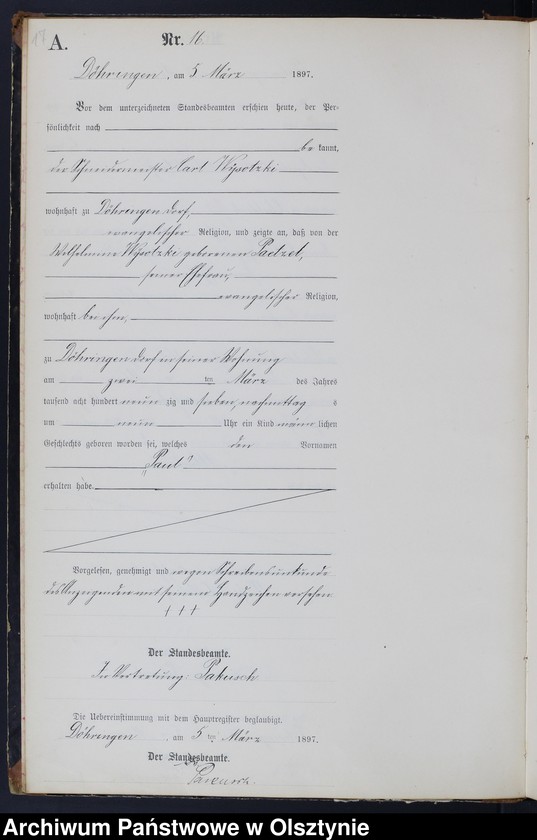 17
A.
Nr. 16
Döhringen, am 5 März 1897.
Vor dem unterzeichneten Standesbeamten erschien heute, der Per-
sönlichkeit nach
be kannt,
der Schneidermeister Carl Wysotzki
wohnhaft zu Döhringen Dorf,
evangelischer Religion, und zeigte an, daß von der
Wilhelmine Wysotzki geborenen Paetzel,
seiner Ehefrau,
evangelischer Religion,
wohnhaft bei ihm,
zu Döhringen Dorf in seiner Wohnung
am zwei ten März des Jahres
tausend acht hundert neun zig und sieben, nachmittag s
um neun Uhr ein Kind männ lichen
Geschlechts geboren worden sei, welches den Vornamen
„Paul“
erhalten habe.
Vorgelesen, genehmigt und wegen Schreibensunkunde
des Anzeigenden mit seinem Handzeichen versehen
+ + +
Der Standesbeamte.
In Vertretung: Pakusch
Die Uebereinstimmung mit dem Hauptregister beglaubigt.
Döhringen, am 5 ten März 1897.
Der Standesbeamte.
Pakusch.
Archiwum Państwowe w Olsztynie